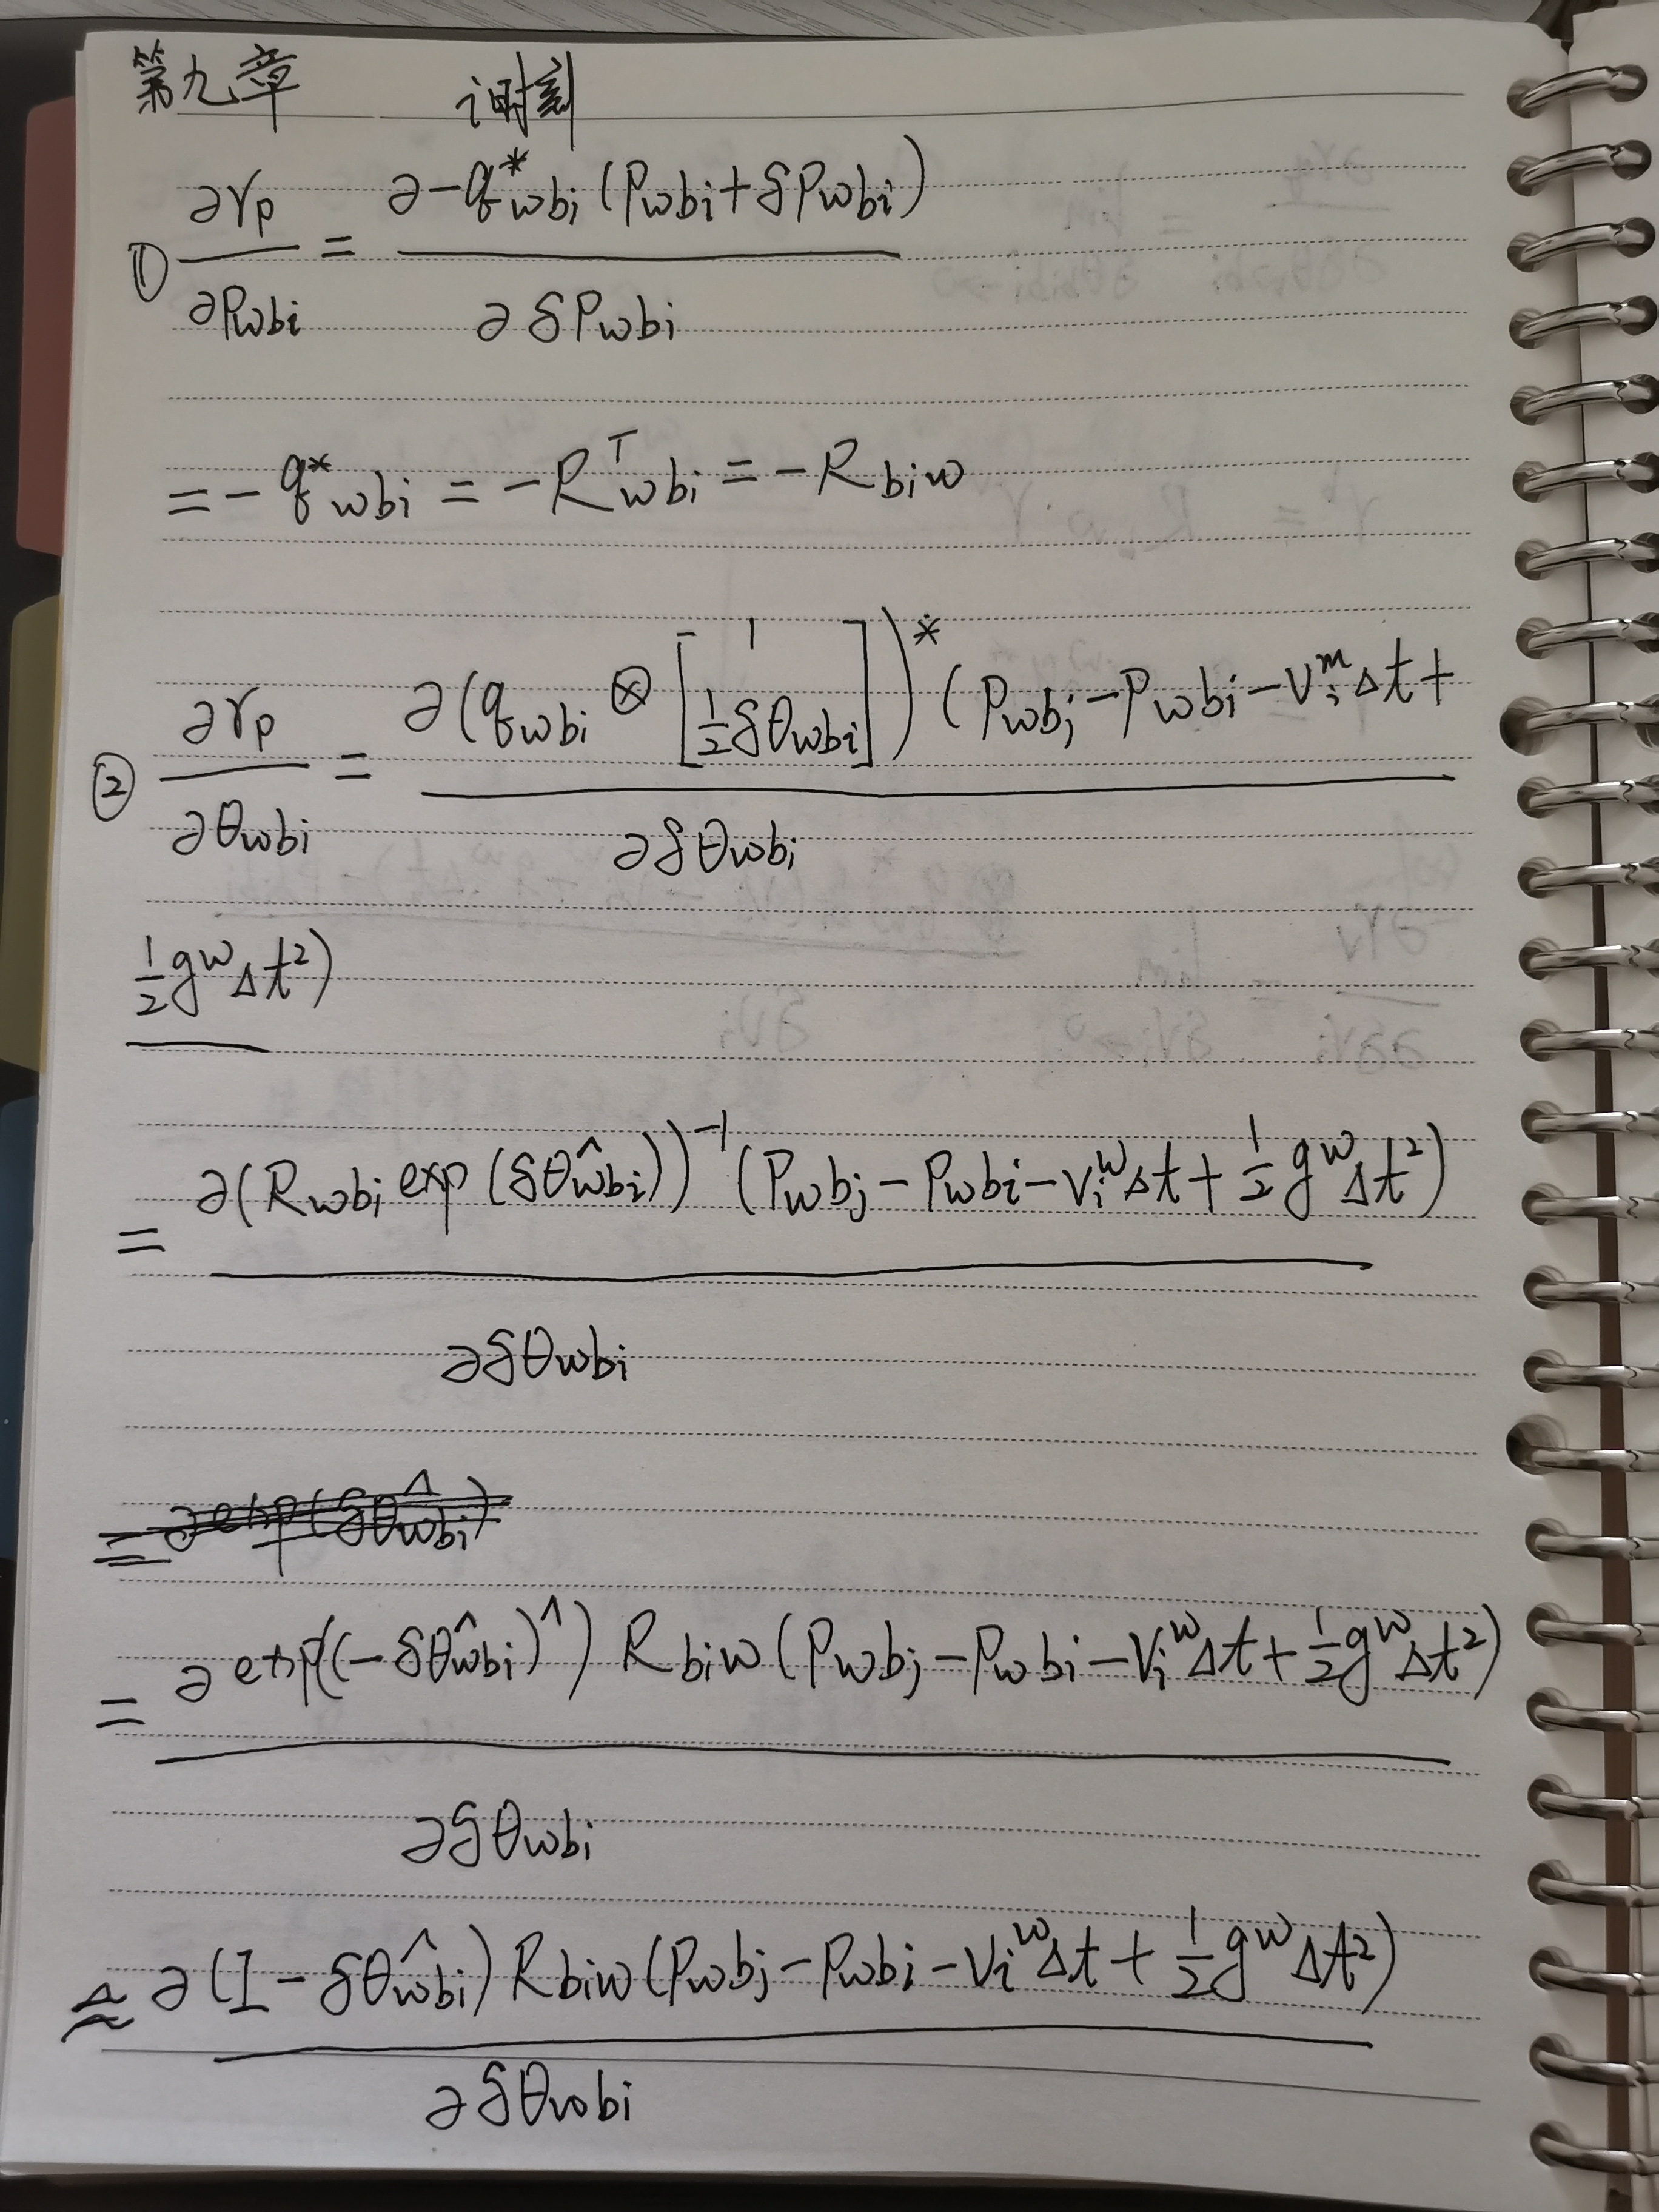 第九章 i时刻
① ∂r_p/∂p_wbi = ∂-q*_wbi (p_wbi + δp_wbi) / ∂δp_wbi
= -q*_wbi = -R^T_wbi = -R_biw
② ∂r_p/∂θ_wbi = ∂(q_wbi ⊗ [1 ½δθ_wbi])* (p_wbj - p_wbi - v_i^m Δt +
½g^w Δt²) / ∂δθ_wbi
= ∂(R_wbi exp(δθ^_wbi))^-1 (p_wbj - p_wbi - v_i^w Δt + ½g^w Δt²) / ∂δθ_wbi
= ∂exp((-δθ^_wbi)^) R_biw (p_wbj - p_wbi - v_i^w Δt + ½g^w Δt²) / ∂δθ_wbi
≈ ∂(I - δθ^_wbi) R_biw (p_wbj - p_wbi - v_i^w Δt + ½g^w Δt²) / ∂δθ_wbi